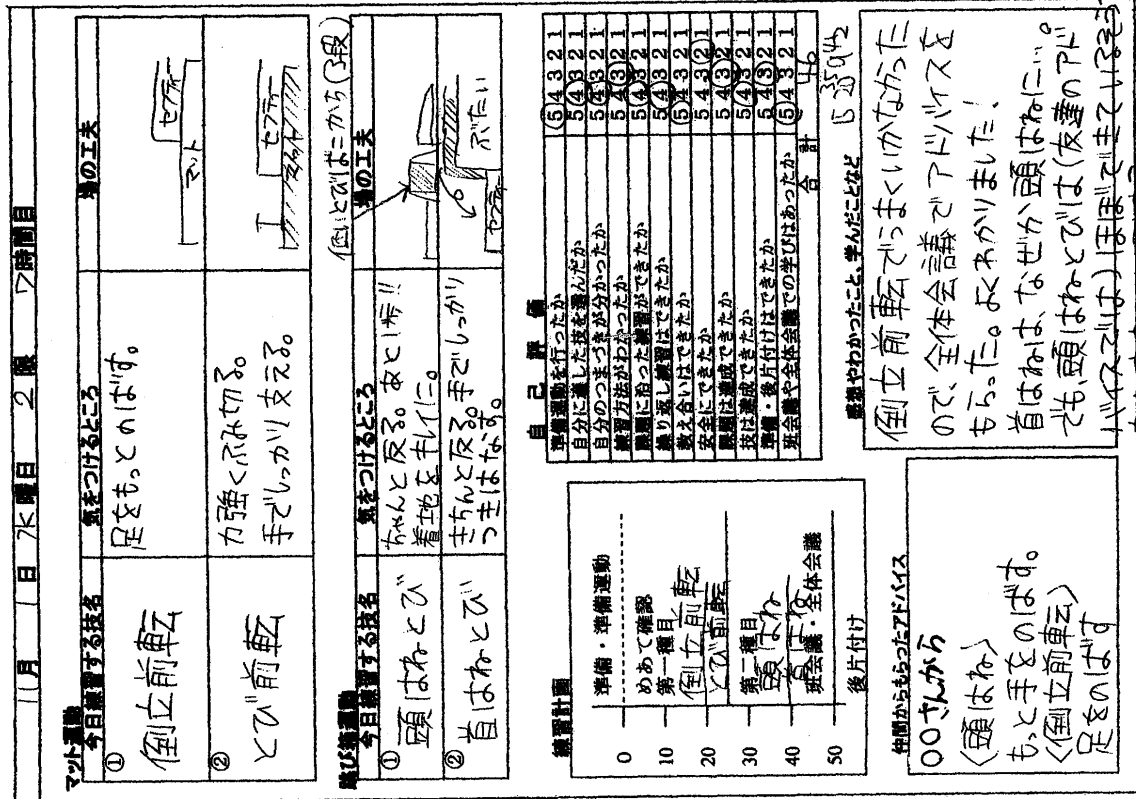 11月 1日 水曜日 2限 7時間目
マット運動
今日練習する技名 気をつけるところ 場の工夫
① 倒立前転
足をもっとのばす。
セフティー
マット
② とび前転
力強くふみ切る。
手でしっかり支える。
セフティー
跳び箱運動
今日練習する技名 気をつけるところ 場の工夫
低いとびばこから(3段)
① 頭はねとび
ちゃんと反る。あと1歩!!
着地をキレイに。
② 首はねとび
きちんと反る。手でしっかり
つきはなす。
ぶたい
セフティー
練習計画
準備・準備運動
0
めあて確認
10
第一種目
倒立前転
20
とび前転
第二種目
30
頭はね
首はね
40
班会議・全体会議
50
後片付け
自己評価
準備運動を行ったか 5 4 3 2 1
自分に適した技を選んだか 5 4 3 2 1
自分のつまづきが分かったか 5 4 3 2 1
練習方法がわかったか 5 4 3 2 1
課題に沿った練習ができたか 5 4 3 2 1
繰り返し練習はできたか 5 4 3 2 1
教え合いはできたか 5 4 3 2 1
安全にできたか 5 4 3 2 1
課題は達成できたか 5 4 3 2 1
技は達成できたか 5 4 3 2 1
準備・後片付けはできたか 5 4 3 2 1
班会議や全体会議での学びはあったか 5 4 3 2 1
合計 46
仲間からもらったアドバイス
〇〇さんから
〈頭はね〉
もっと手をのばす。
〈倒立前転〉
足をのばす
感想やわかったこと、学んだことなど
倒立前転でうまくいかなかった
ので、全体会議でアドバイスを
もらった。よくわかりました!
首はねは、なぜか頭はねに…。
でも、頭はねとびは(友達のアド
バイスでは)ほぼできている